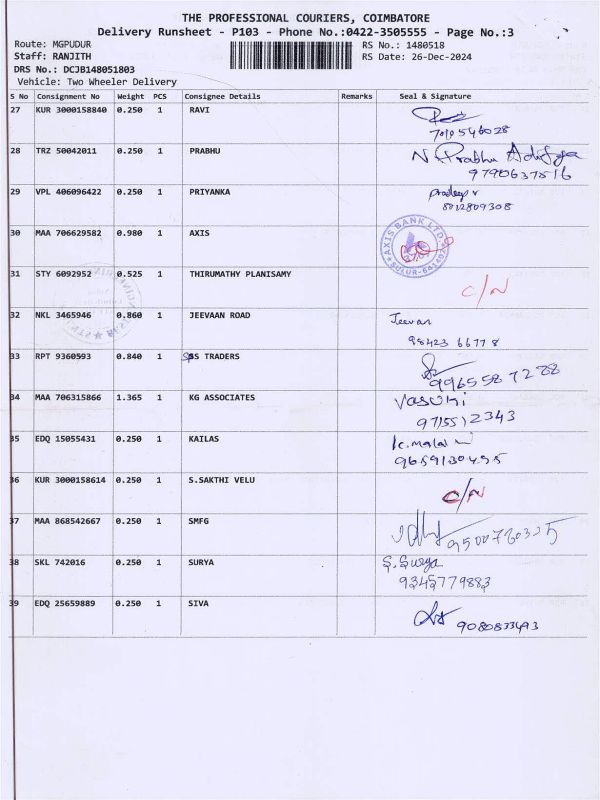 THE PROFESSIONAL COURIERS, COIMBATORE
Delivery Runsheet - P103 - Phone No.:0422-3505555 - Page No.:3
Route: MGPUDUR
RS No.: 1480518
Staff: RANJITH
RS Date: 26-Dec-2024
DRS No.: DCJB148051803
Vehicle: Two Wheeler Delivery
S No Consignment No Weight PCS Consignee Details Remarks Seal & Signature
27 KUR 3000158840 0.250 1 RAVI
28 TRZ 50042011 0.250 1 PRABHU N. Prabhu
9790637516
29 VPL 406096422 0.250 1 PRIYANKA pradeep v
8012809308
30 MAA 706629582 0.980 1 AXIS AXIS BANK LTD SULUR
31 STY 6092952 0.525 1 THIRUMATHY PLANISAMY C/N
32 NKL 3465946 0.860 1 JEEVAAN ROAD Jeevan
98423 66778
33 RPT 9360593 0.840 1 SBS TRADERS
9965587288
34 MAA 706315866 1.365 1 KG ASSOCIATES Vasuki
9715512343
35 EDQ 15055431 0.250 1 KAILAS
9659130495
36 KUR 3000158614 0.250 1 S.SAKTHI VELU C/N
37 MAA 868542667 0.250 1 SMFG
38 SKL 742016 0.250 1 SURYA S. Surya
9345779883
39 EDQ 25659889 0.250 1 SIVA 9080833493